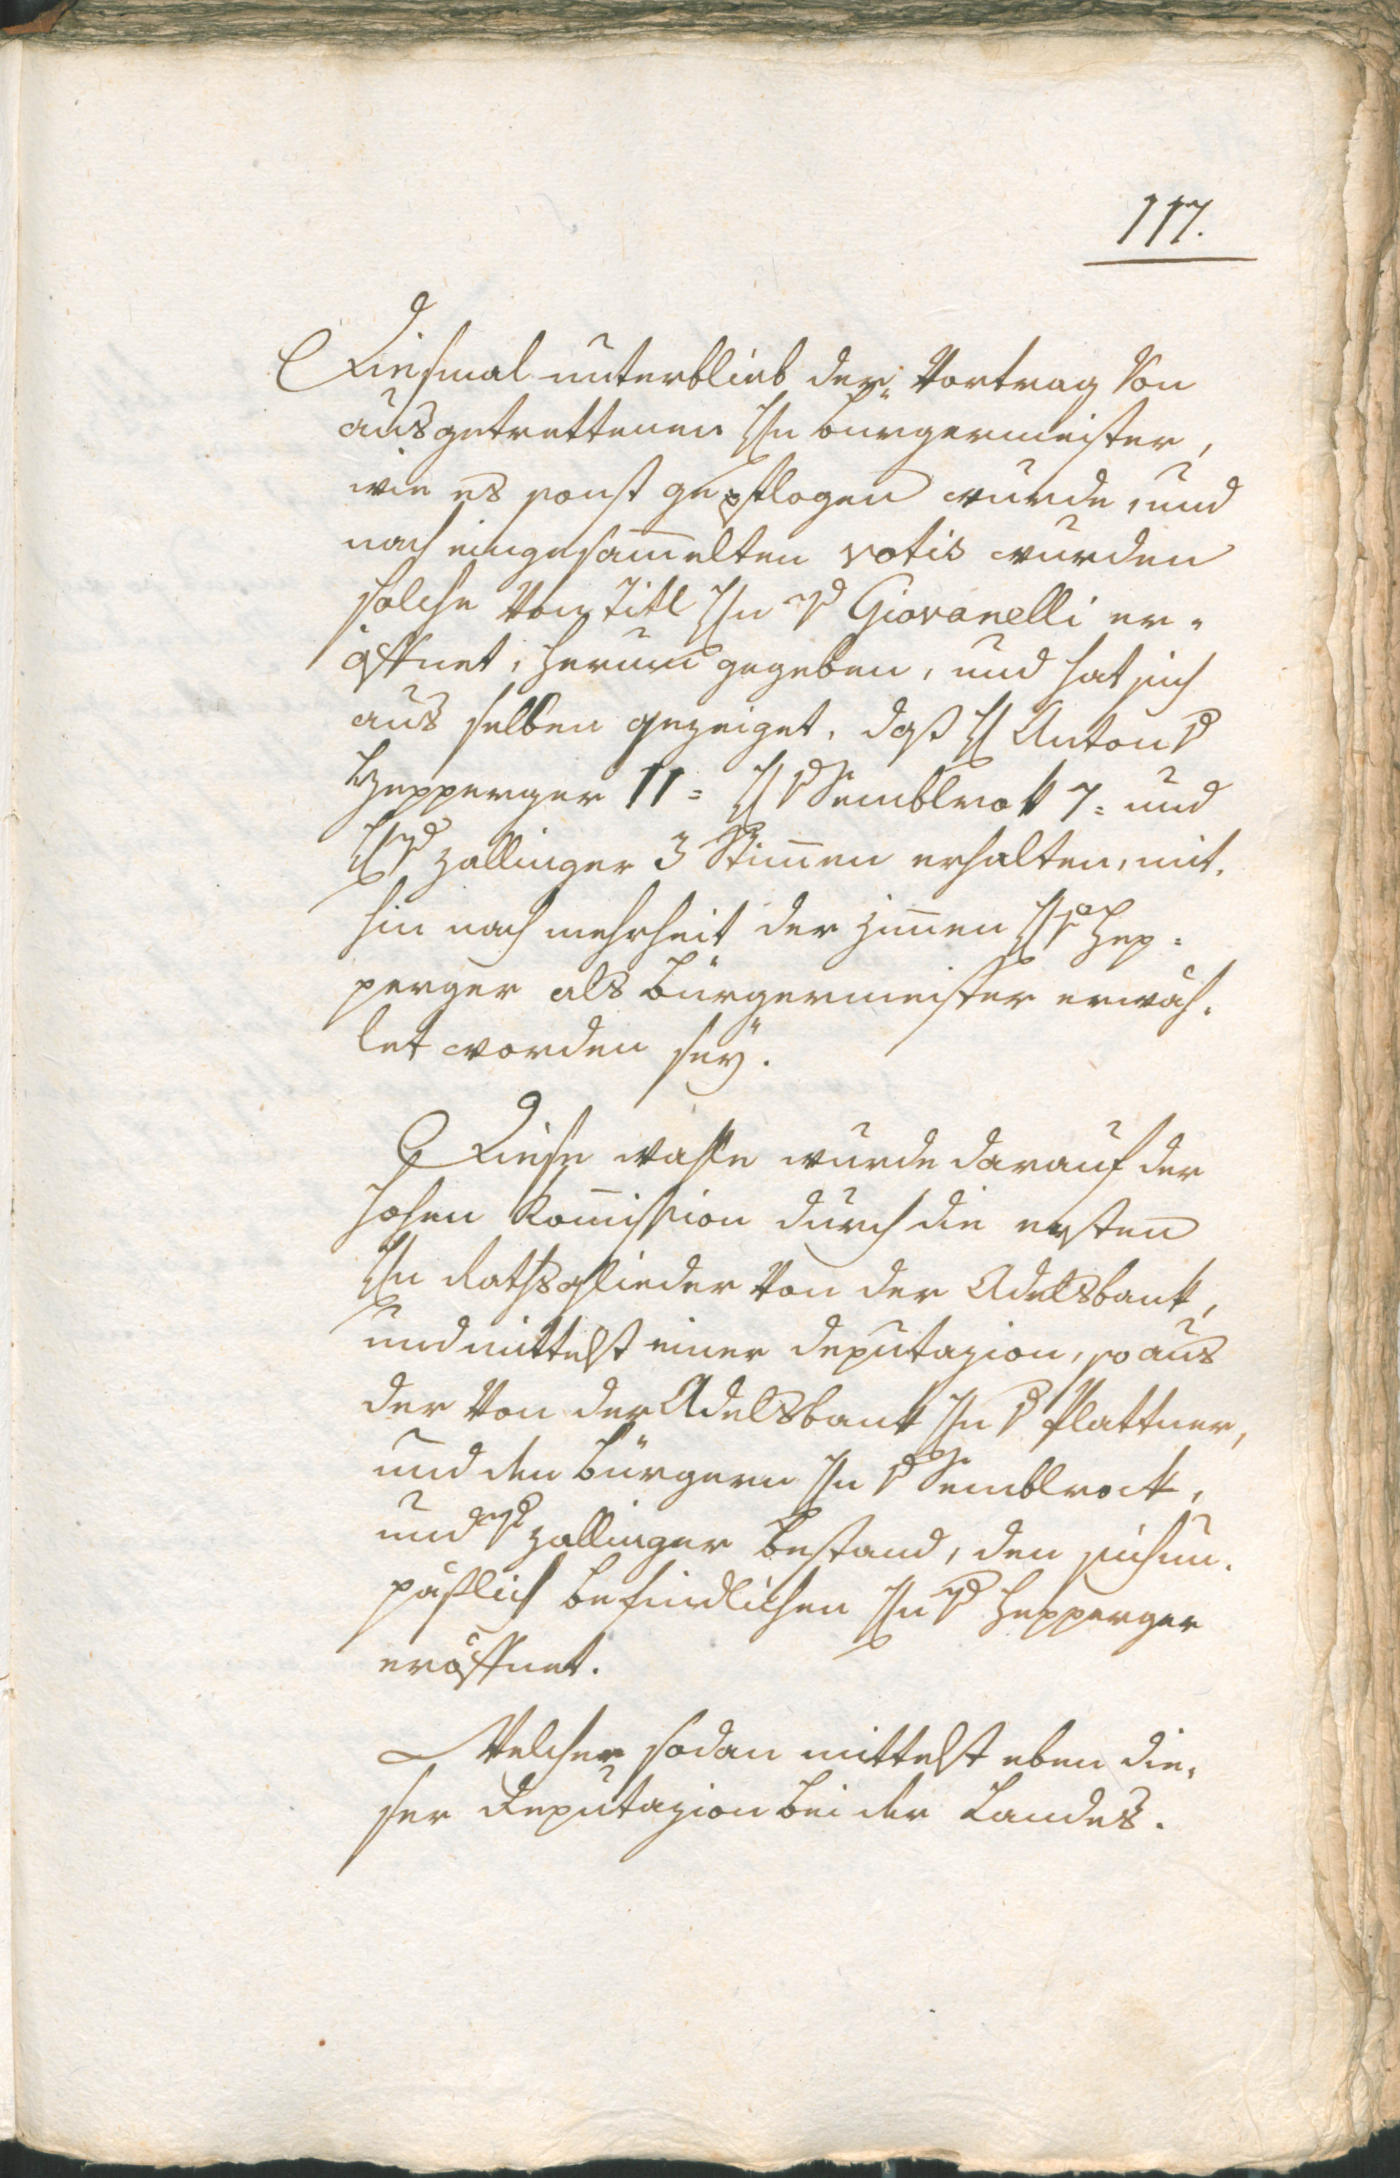 117.
Diesmal unterblieb der Vortrag von
ausgetrettenen Hn Bürgermeister,
wie es sonst gepflogen wurde, und
nach eingesam̅elten votis wurden
solche von Titl Hn v Giovanelli er-
öffnet, herum gegeben, und hat sich
aus selben gezeiget, daß H Anton v
Hepperger 11= H v Semblrok 7= und
H v Zallinger 3 Stim̅en erhalten, mit-
hin nach mehrheit der Stim̅en H v Hep-
perger als Bürgermeister erwäh-
let worden seÿ.
Diese wahl wurde darauf der
hohen Kom̅ission durch die ersten
Hn Rathsglieder von der Adelsbank,
und mittelst einer Deputazion, so aus
der von der Adelsbank Hn v Plattner,
und den Bürgern Hn v Semblrock,
und v Zallinger bestand, den sich un-
päßlich befindlichen Hn v Hepperger
eröffnet.
Welcher sodan mittelst eben die-
ser Deputazion bei der Landes-